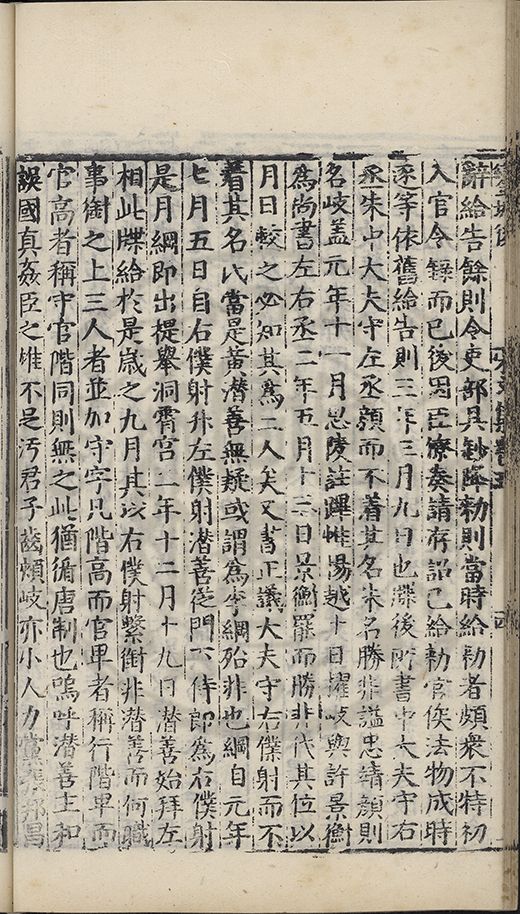 辭給告餘則令吏部具鈔降勑則當時給勑者頗衆不特初
入官令錄而已後因臣僚奏請存詔已給勑官俟法物成時
逐等依舊給告則三年三月九日也牒後所書中大夫守右
丞朱中大夫守左丞顔而不着其名朱名勝非謚忠靖顔則
名岐盖元年十一月思陵註蹕惟揚越十日擢岐與許景衡
爲尚書左右丞二年五月十三日景衡罷而勝非代其位以
月日較之必知其爲二人矣又書正議大夫守右僕射而不
着其名氏當是黄潜善無疑或謂爲李綱殆非也綱自元年
七月五日自右僕射升左僕射潜善從門下侍郎爲右僕射
是月綱即出提舉洞霄宫二年十二月十九日潜善始拜左
相此牒給於是歲之九月其以右僕射繫銜非潜善而何職
事銜之上三人者並加守字凡階高而官卑者稱行階卑而
官高者稱守官階同則無之此猶循唐制也嗚呼潜善主和
誤國真姦臣之雄不足汚君子齒頰岐亦小人力黨邦昌